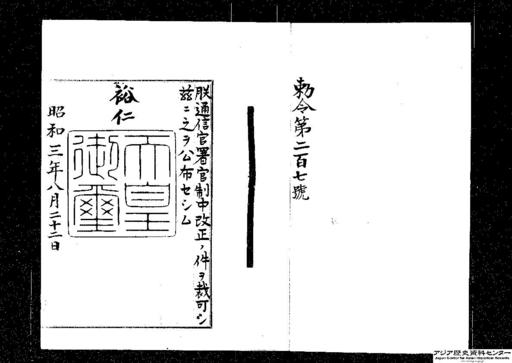 勅令第二百七號
朕通信官署官制中改正ノ件ヲ裁可シ
茲ニ之ヲ公布セシム
裕仁
天皇御璽
昭和三年八月二十二日
アジア歴史資料センター
Japan Center for Asian Historical Records